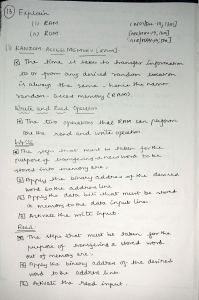 (13) Explain
(i) RAM
(ii) ROM
(i) RANDOM-ACCESS MEMORY [RAM]
The time it takes to transfer information
to or from any desired random location
is always the same - hence the name
random-access memory (RAM).
Write and Read Operation
The two operation that RAM can perform
are the read and write operation.
Write
The steps that must be taken for the
purpose of transferring a new word to be
stored into memory are:
Apply the binary address of the desired
word to the address line
Apply the data bits that must be stored
in memory to the data input line.
Activate the write input.
Read
The steps that must be taken for the
purpose of transferring a stored word
out of memory are:
Apply the binary address of the desired
word to the address line.
Activate the read input.